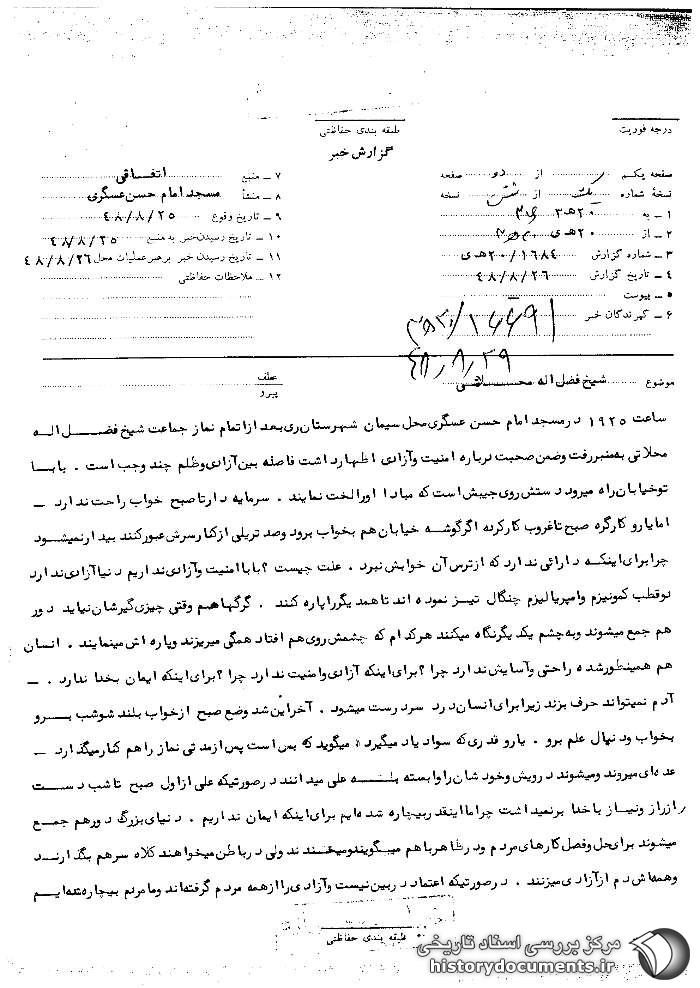 درجه فوریت
طبقه بندی حفاظتی
گزارش خبر
صفحه یکم از دو صفحه
نسخهٔ شماره یک از شش نسخه
۱ ـ به ۲۰هـ۳
۲ ـ از ۲۰هـی
۳ ـ شماره گزارش ۲۰/۱۶۸۴هـی
۴ ـ تاریخ گزارش ۴۸/۸/۲۶
۵ ـ پیوست
۶ ـ گیرندگان خبر
۷ ـ منبع اتفاقی
۸ ـ منشأ مسجد امام حسن عسگری
۹ ـ تاریخ وقوع ۴۸/۸/۲۵
۱۰ ـ تاریخ رسیدن خبر به منبع ۴۸/۸/۲۵
۱۱ ـ تاریخ رسیدن خبر برهبر عملیات محل ۴۸/۸/۲۶
۱۲ ـ ملاحظات حفاظتی
۴۸/۸/۲۹
موضوع شیخ فضل اله محلاتی
عطف
پیرو
ساعت ۱۹۲۵ در مسجد امام حسن عسگری محل سیمان شهرستان ری بعد از اتمام نماز جماعت شیخ فضل اله
محلاتی به منبر رفت و ضمن صحبت درباره امنیت و آزادی اظهار داشت فاصله بین آزادی و ظلم چند وجب است . بابا
تو خیابان راه میرود دستش روی جیبش است که مبادا او را لخت نمایند . سرمایه دار تا صبح خواب راحت ندارد ـ
اما یارو کارگره صبح تا غروب کار کرده اگر گوشه خیابان هم بخواب برود وصد تریلی از کنار سرش عبور کنند بیدار نمیشود
چرا برای اینکه دارائی ندارد که از ترس آن خوابش نبرد . علت چیست ؟ بابا امنیت و آزادی نداریم دنیا آزادی ندارد
دوقطب کمونیزم و امپریالیزم چنگال تیز نموده اند تا همدیگر را پاره کنند . گرگها هم وقتی چیزی گیرشان نیاید دور
هم جمع میشوند و به چشم یکدیگر نگاه میکنند هر کدام که چشمش روی هم افتاد همگی میریزند و پاره اش مینمایند . انسان
هم همینطور شده راحتی و آسایش ندارد چرا ؟ برای اینکه آزادی و امنیت ندارد چرا ؟ برای اینکه ایمان بخدا ندارد . ـ
آدم نمیتواند حرف بزند زیرا برای انسان درد سر درست میشود . آخر این شد وضع صبح از خواب بلند شو شب برو
بخواب و دنبال علم برو . یارو قدری که سواد یاد میگیرد میگوید که بس است پس از مدتی نماز را هم کنار میگذارد ـ
عده ای میروند و میشوند درویش و خودشان را وابسته به علی میدانند در صورتیکه علی از اول صبح تا شب دست
از راز و نیاز با خدا برنمیداشت چرا ما اینقدر بیچاره شده ایم برای اینکه ایمان نداریم . دنیای بزرگ دور هم جمع
میشوند برای حل و فصل کارهای مردم و در ظاهر با هم میگویند و میخندند ولی در باطن میخواهند کلاه سر هم بگذارند
و همه اش دم از آزادی میزنند . در صورتیکه اعتماد در بین نیست و آزادی را از همه مردم گرفته اند و ما مردم بیچاره شده ایم
طبقه بندی حفاظتی
مرکز بررسی اسناد تاریخی
historydocuments.ir